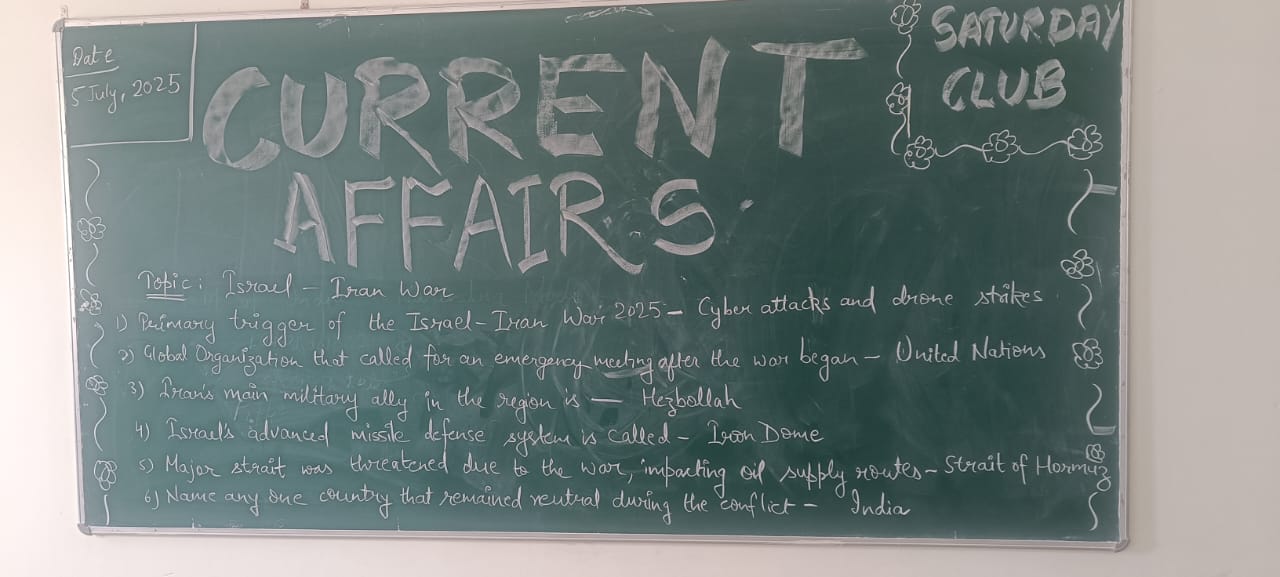 Date
5 July, 2025
CURRENT
AFFAIRS.
SATURDAY
CLUB
Topic: Israel – Iran War
1) Primary trigger of the Israel-Iran War 2025 – Cyber attacks and drone strikes
2) Global Organization that called for an emergency meeting after the war began – United Nations
3) Iran's main military ally in the region is – Hezbollah
4) Israel's advanced missile defense system is called – Iron Dome
5) Major strait was threatened due to the war, impacting oil supply routes – Strait of Hormuz
6) Name any one country that remained neutral during the conflict – India